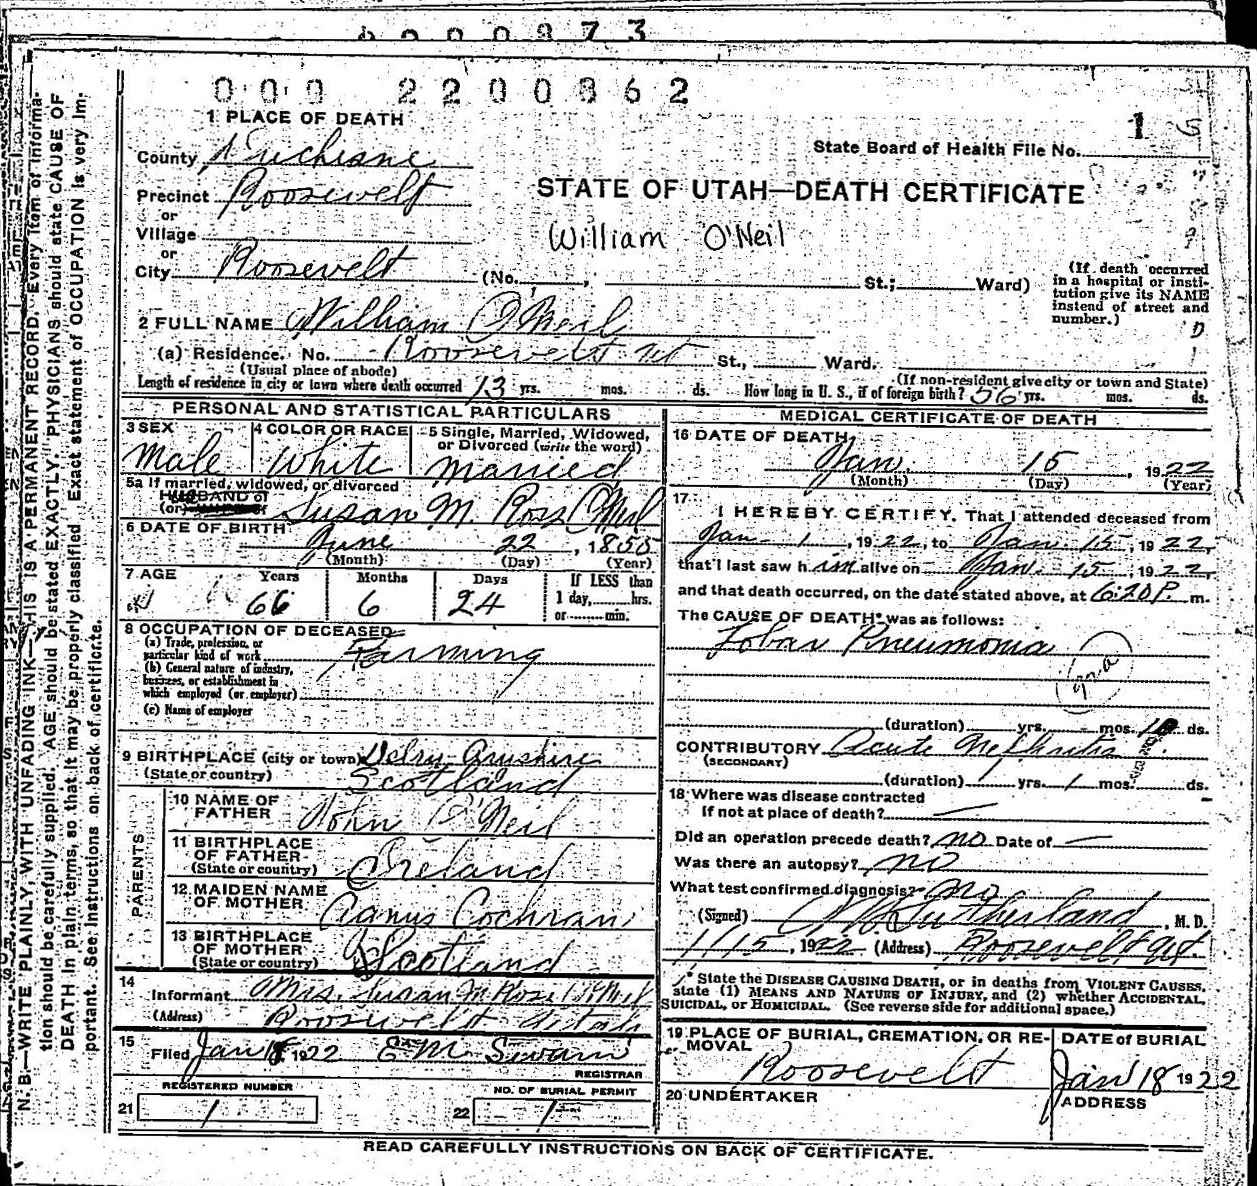 000 2200862
1 PLACE OF DEATH
County Duchesne
State Board of Health File No. 1
Precinct Roosevelt
STATE OF UTAH—DEATH CERTIFICATE
or
Village
William O'Neil
or
City Roosevelt (No. , St.; Ward)
(If death occurred in a hospital or institution give its NAME instead of street and number.)
2 FULL NAME William O'Neil
(a) Residence. No. Roosevelt Ut St., Ward.
(Usual place of abode) (If non-resident give city or town and State)
Length of residence in city or town where death occurred 13 yrs. mos. ds. How long in U. S., if of foreign birth? 56 yrs. mos. ds.
PERSONAL AND STATISTICAL PARTICULARS
3 SEX 4 COLOR OR RACE 5 Single, Married, Widowed, or Divorced (write the word)
Male White Married
5a If married, widowed, or divorced
HUSBAND of
(or) Susan M. Ross O'Neil
6 DATE OF BIRTH June 22, 1855
(Month) (Day) (Year)
7 AGE Years Months Days If LESS than
66 6 24 1 day, hrs.
or min.
8 OCCUPATION OF DECEASED
(a) Trade, profession, or
particular kind of work Farming
(b) General nature of industry,
business, or establishment in
which employed (or employer)
(c) Name of employer
9 BIRTHPLACE (city or town)
(State or country) Scotland
PARENTS
10 NAME OF
FATHER John O'Neil
11 BIRTHPLACE
OF FATHER
(State or country) Ireland
12 MAIDEN NAME
OF MOTHER Agnus Cochran
13 BIRTHPLACE
OF MOTHER
(State or country) Scotland
14
Informant Mrs. Susan M. Ross O'Neil
(Address) Roosevelt Utah
15
Filed Jan 18, 1922 E M Swain
REGISTRAR
REGISTERED NUMBER NO. OF BURIAL PERMIT
21 1 22 1
MEDICAL CERTIFICATE OF DEATH
16 DATE OF DEATH
Jan. 15, 1922
(Month) (Day) (Year)
17
I HEREBY CERTIFY. That I attended deceased from
Jan 1, 1922, to Jan. 15, 1922,
that I last saw him alive on Jan. 15, 1922,
and that death occurred, on the date stated above, at 6:20 P. m.
The CAUSE OF DEATH* was as follows:
Lobar Pneumonia
(duration) yrs. mos. 10 ds.
CONTRIBUTORY Acute Nephritis
(SECONDARY)
(duration) yrs. 1 mos. ds.
18 Where was disease contracted
If not at place of death? —
Did an operation precede death? no Date of —
Was there an autopsy? no
What test confirmed diagnosis? no
(Signed) Sutherland, M. D.
1/15, 1922 (Address) Roosevelt Ut.
* State the DISEASE CAUSING DEATH, or in deaths from VIOLENT CAUSES,
state (1) MEANS AND NATURE OF INJURY, and (2) whether ACCIDENTAL,
SUICIDAL, OR HOMICIDAL. (See reverse side for additional space.)
19 PLACE OF BURIAL, CREMATION, OR RE- DATE of BURIAL
MOVAL
Roosevelt Jan 18 1922
20 UNDERTAKER ADDRESS
READ CAREFULLY INSTRUCTIONS ON BACK OF CERTIFICATE.
N. B.—WRITE PLAINLY, WITH UNFADING INK—THIS IS A PERMANENT RECORD. Every item of informa-
tion should be carefully supplied. AGE should be stated EXACTLY. PHYSICIANS should state CAUSE OF
DEATH in plain terms, so that it may be properly classified. Exact statement of OCCUPATION is very im-
portant. See instructions on back of certificate.